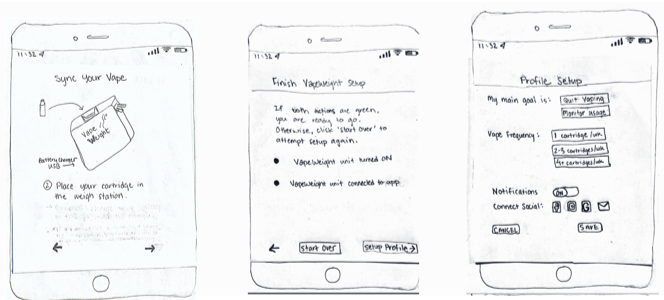 11:52
Sync Your Vape
Vape
Weight
Battery charger
USB
② Place your cartridge in
the weigh station.
11:52
Finish VapeWeight Setup
If both buttons are green,
you are ready to go.
Otherwise, click "start over" to
attempt setup again.
• VapeWeight unit turned ON
• VapeWeight unit connected to app
Start Over
Setup Profile →
11:52
Profile Setup
My main goal is:
Quit Vaping
Monitor Usage
Vape Frequency:
1 cartridge /wk
2-3 cartridges/wk
4+ cartridges/wk
Notifications
ON
Connect Social:
CANCEL
SAVE